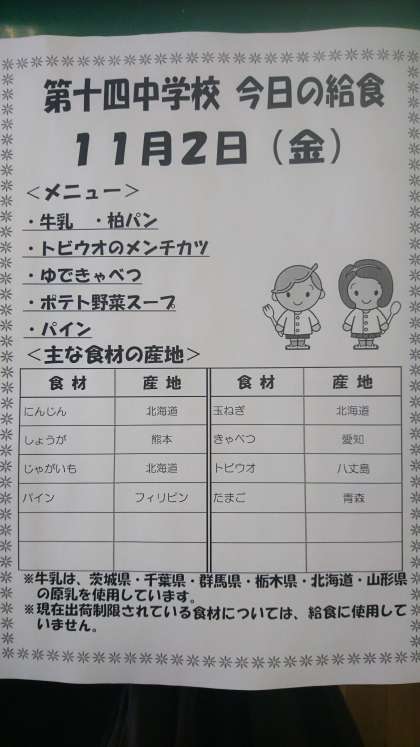 第十四中学校 今日の給食
11月2日（金）
＜メニュー＞
・牛乳 ・柏パン
・トビウオのメンチカツ
・ゆできゃべつ
・ポテト野菜スープ
・パイン
＜主な食材の産地＞
食材 産地 食材 産地
にんじん 北海道 玉ねぎ 北海道
しょうが 熊本 きゃべつ 愛知
じゃがいも 北海道 トビウオ 八丈島
パイン フィリピン たまご 青森
※牛乳は、茨城県・千葉県・群馬県・栃木県・北海道・山形県
の原乳を使用しています。
※現在出荷制限されている食材については、給食に使用して
いません。